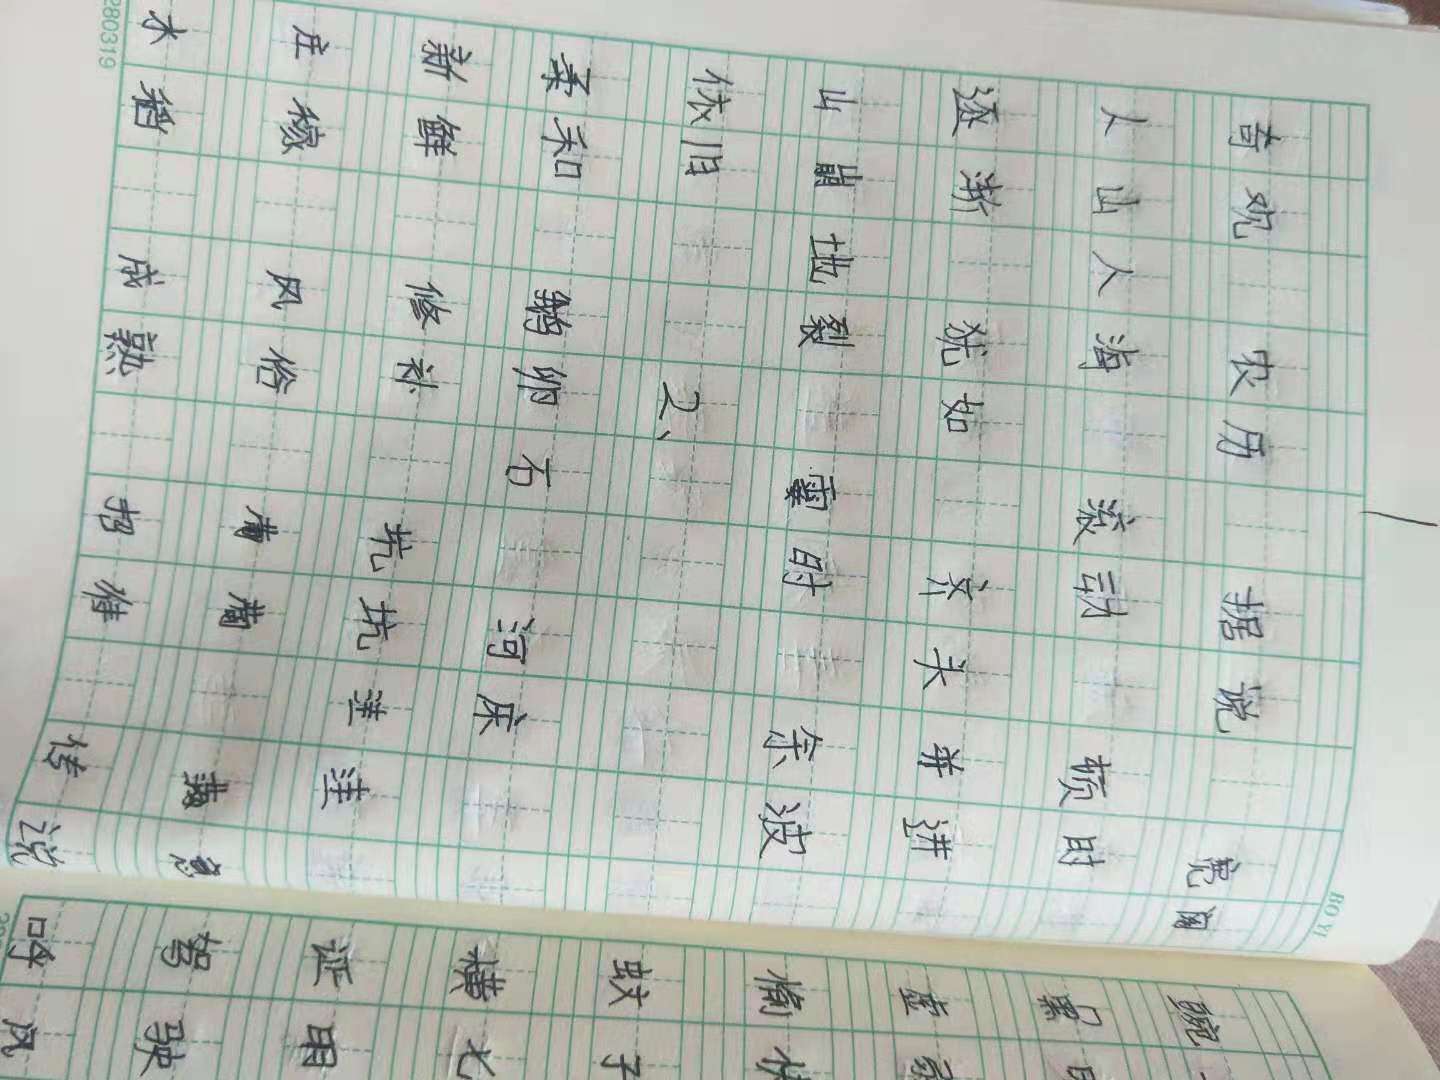 BO YI
奇观 农历 据说 宽阔
人山人海 滚动 顿时
逐渐 犹如 齐头并进
山崩地裂 霎时 余波
依旧
柔和 鹅卵石 河床
新鲜 修补 坑坑洼洼
庄稼 风俗 满意
水稻 成熟 传说
280319
豌
累
蚊子
横七
证明
驾驶
呼风